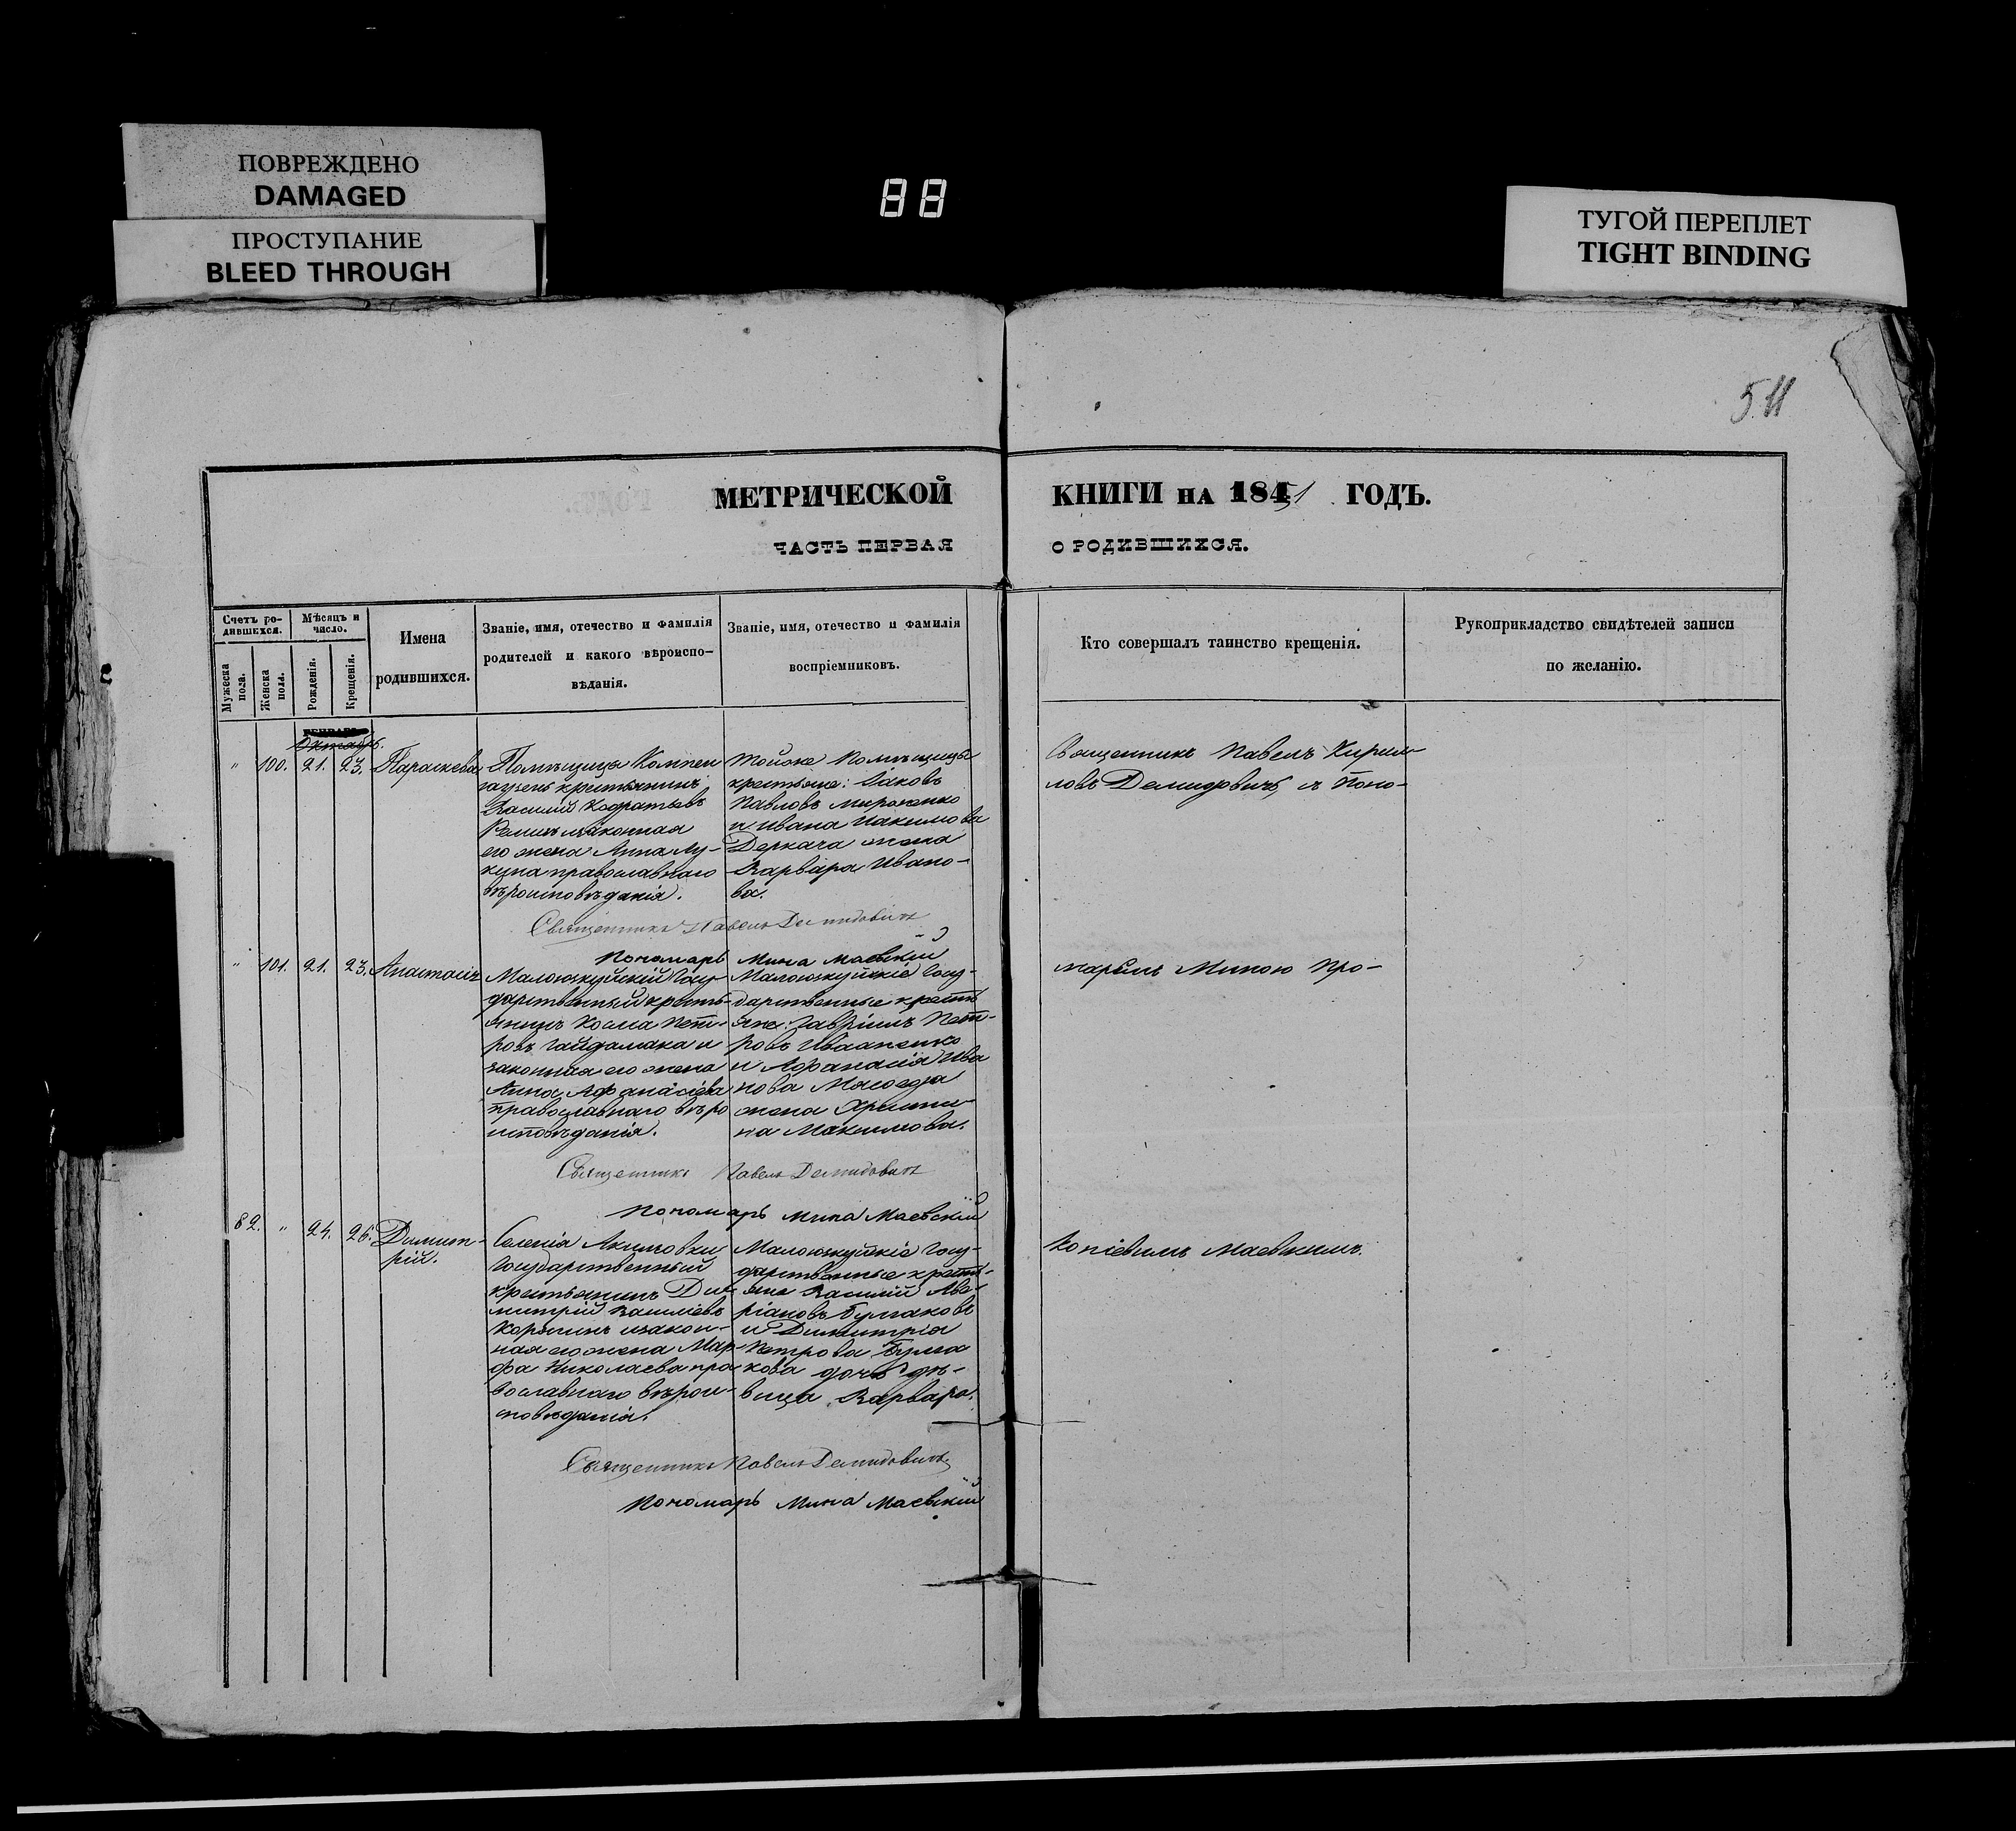 ПОВРЕЖДЕНО
DAMAGED
ПРОСТУПАНИЕ
BLEED THROUGH
88
ТУГОЙ ПЕРЕПЛЕТ
TIGHT BINDING
511
МЕТРИЧЕСКОЙ КНИГИ НА 1851 ГОДЪ.
ЧАСТЬ ПЕРВАЯ О РОДИВШИХСЯ.
Счетъ ро-
дившихся.
Мужеска пола.
Женска пола.
Мѣсяцъ и
число.
Рожденія.
Крещенія.
Имена
родившихся.
Званіе, имя, отечество и фамилія
родителей и какого вѣроиспо-
вѣданія.
Званіе, имя, отечество и фамилія
воспріемниковъ.
Кто совершалъ таинство крещенія.
Рукоприкладство свидѣтелей записи
по желанію.
Октябрь.
" 100. 21. 23. Параскева
Помѣщицы
крестьянинъ
Василій Кодратьевъ
законная
его жена Анна Лу-
кина православнаго
вѣроисповѣданія.
тойже Помѣщицы
крестьяне: Іаковъ
Павловъ Мироненко
и Ивана Іакимова
Деркача жена
Варвара Ивано-
ва.
Священникъ Павелъ Кирил-
ловъ Демидовичъ, съ Поно-
Священникъ Павелъ Демидовичъ
Пономарь Мина Маевскій
" 101. 21. 23. Анастасія
Госу-
дарственный кресть-
янинъ Косма Пет-
ровъ Гайдамака и
законная его жена
Анна Афанасіева
православнаго вѣро
исповѣданія.
Госу-
дарственные кресть
яне: Гавріилъ Пет-
ровъ Иваненко
и Афанасія Ива
нова Мясоеда
жена Христи-
на Максимова.
марёмъ Миною Про-
Священникъ Павелъ Демидовичъ
Пономарь Мина Маевскій
82. " 24. 26. Димит-
рій.
Селенія Акимовки
Государственный
крестьянинъ Ди-
митрій Василіевъ
и закон-
ная его жена Мар-
фа Николаева пра
вославнаго вѣрои-
сповѣданія.
Госу-
дарственные кресть-
яне Василій Аве-
ріановъ Булаковъ
и Димитрія
Петрова Була
кова дочь дѣ-
вица Варвара.
копіевымъ Маевскимъ.
Священникъ Павелъ Демидовичъ
Пономарь Мина Маевскій